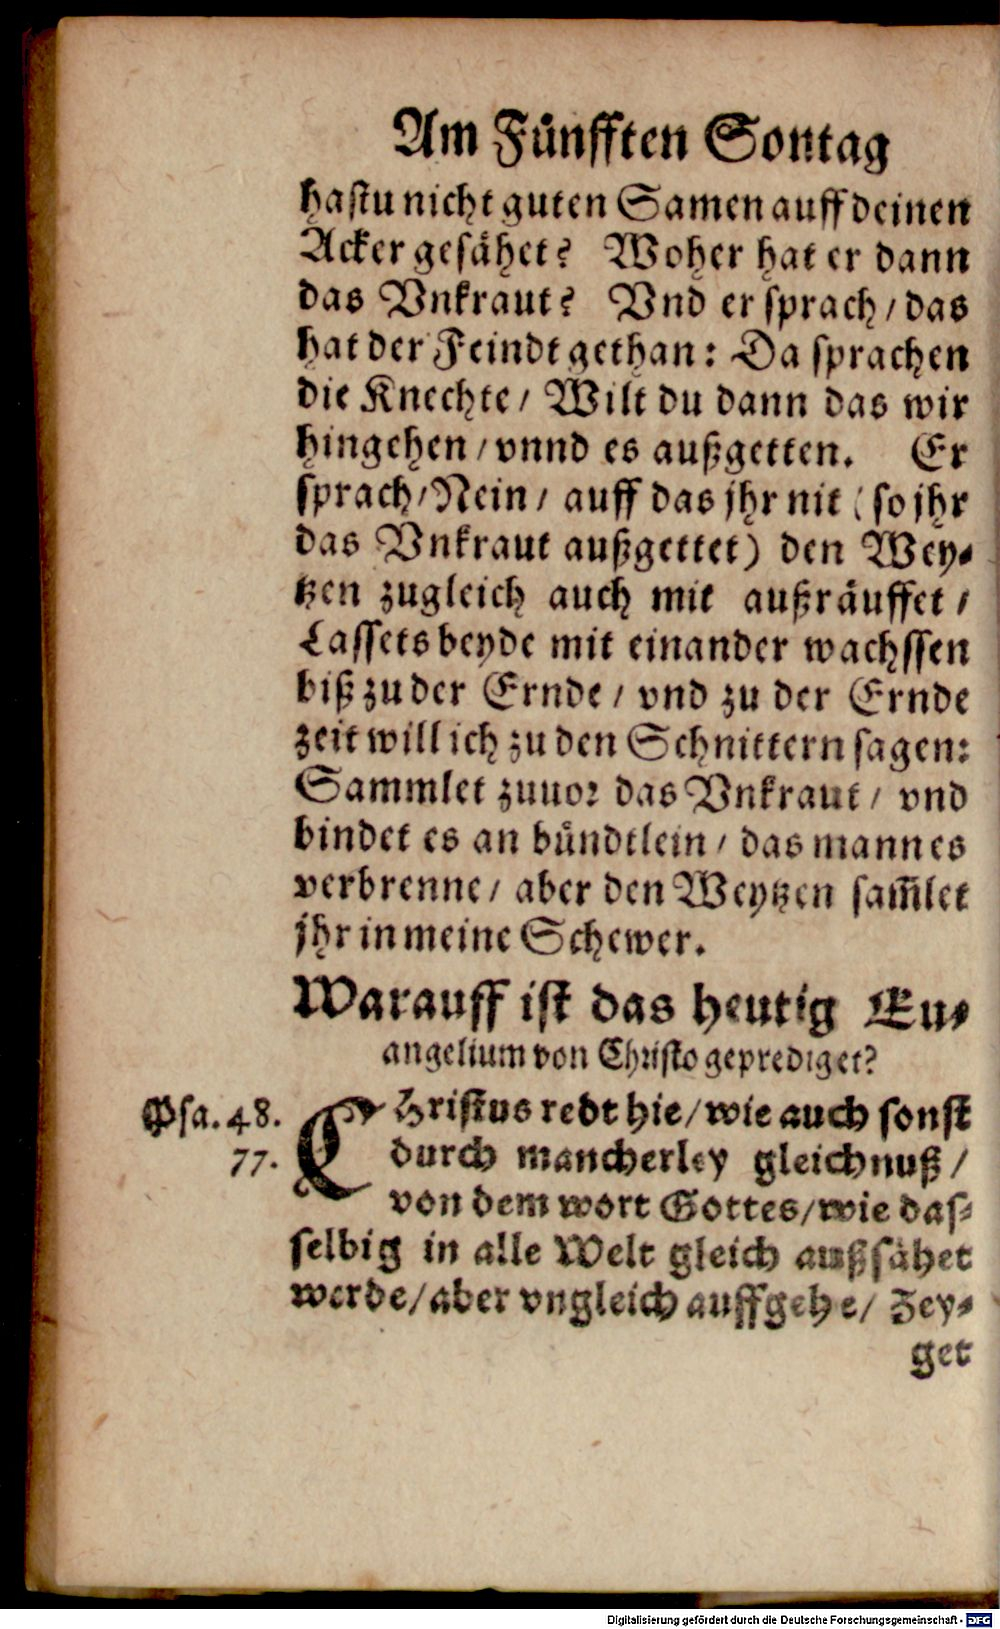 Am Fünfften Sontag
hastu nicht guten Samen auff deinen
Acker gesähet? Woher hat er dann
das Vnkraut? Vnd er sprach / das
hat der Feindt gethan: Da sprachen
die Knechte / Wilt du dann das wir
hingehen / vnnd es außgetten. Er
sprach / Nein / auff das jhr nit (so jhr
das Vnkraut außgettet) den Wey-
tzen zugleich auch mit außräuffet /
Lassets beyde mit einander wachssen
biß zu der Ernde / vnd zu der Ernde
zeit will ich zu den Schnittern sagen:
Sammlet zuuor das Vnkraut / vnd
bindet es an bündtlein / das mann es
verbrenne / aber den Weytzen sam̃let
jhr in meine Schewer.
Warauff ist das heutig Eu-
angelium von Christo geprediget?
Psa. 48.
77.
CHristus redt hie / wie auch sonst
durch mancherley gleichnuß /
von dem wort Gottes / wie das-
selbig in alle Welt gleich außsähet
werde / aber vngleich auffgehe / Zey-
get
Digitalisierung gefördert durch die Deutsche Forschungsgemeinschaft - DFG